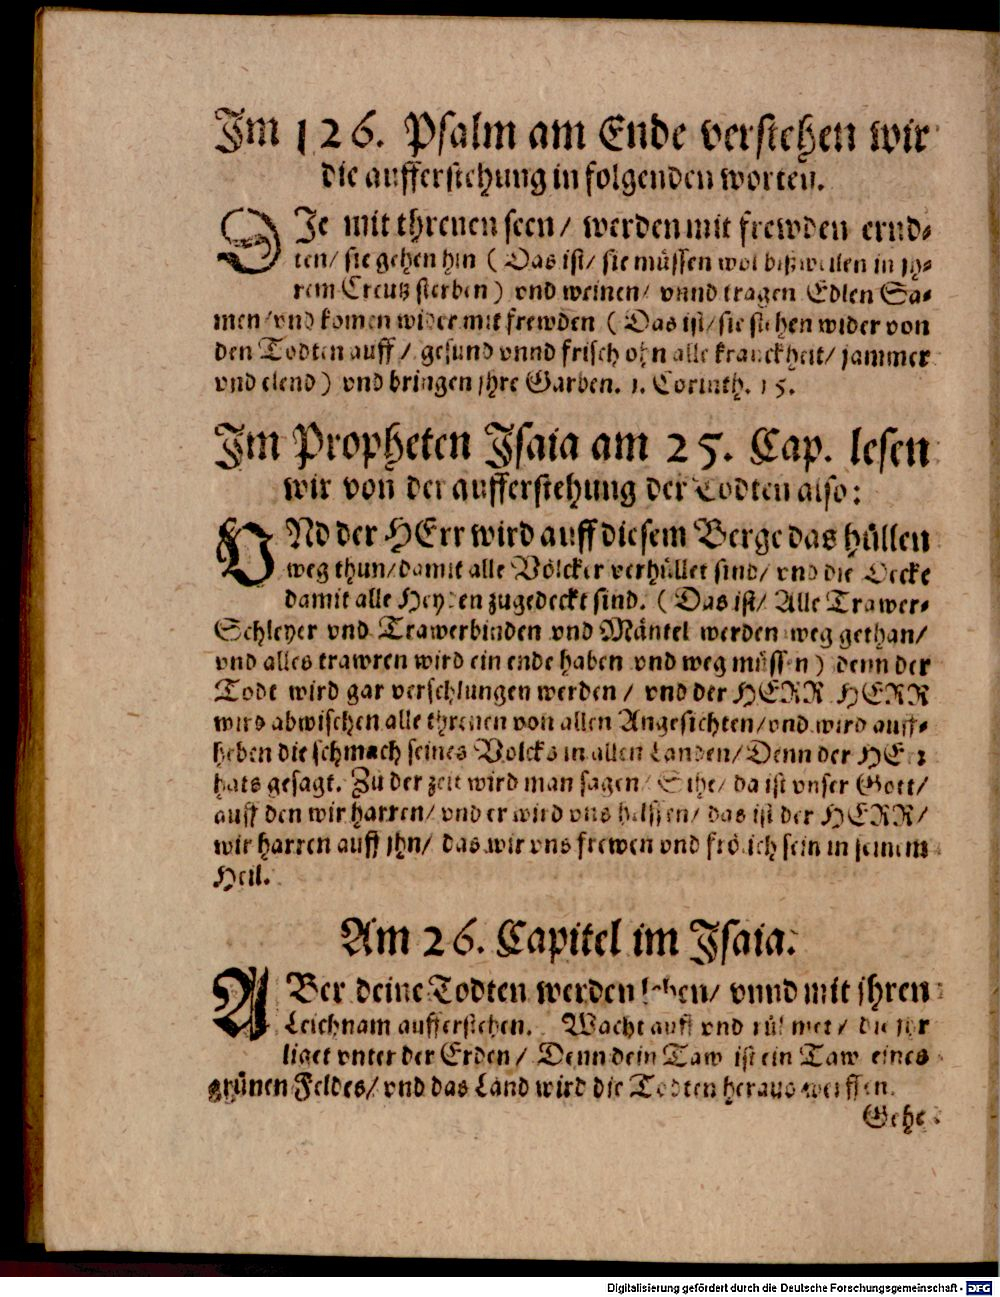 Im 126. Psalm am Ende verstehen wir
die aufferstehung in folgenden worten.
DIe mit threnen seen / werden mit frewden ernd-
ten / sie gehen hin ( Das ist / sie müssen wol bißweilen in jh-
rem Creutz sterben ) vnd weinen / vnnd tragen Edlen Sa-
men / vnd komen wider mit frewden ( Das ist / sie stehen wider von
den Todten auff / gesund vnnd frisch ohn alle kranckheit / jammer
vnd elend ) vnd bringen jhre Garben. 1. Corinth. 15.
Im Propheten Isaia am 25. Cap. lesen
wir von der aufferstehung der Todten also:
VNd der HErr wird auff diesem Berge das hüllen
weg thun / damit alle Völcker verhüllet sind / vnd die Decke
damit alle Heyden zugedeckt sind. ( Das ist / Alle Trawer-
Schleyer vnd Trawerbinden vnd Mäntel werden weg gethan /
vnd alles trawren wird ein ende haben vnd weg müssen ) denn der
Todt wird gar verschlungen werden / vnd der HERR HERR
wird abwischen alle threnen von allen Angesichten / vnd wird auff-
heben die schmach seines Volcks in allen Landen / Denn der HErr
hats gesagt. Zu der zeit wird man sagen / Sihe / da ist vnser Gott /
auff den wir harren / vnd er wird vns helffen / das ist der HERR /
wir harren auff jhn / das wir vns frewen vnd frölich sein in seinem
Heil.
Am 26. Capitel im Isaia.
ABer deine Todten werden leben / vnnd mit ihren
Leichnam aufferstehen. Wacht auff vnd rühmet / die jhr
liget vnter der Erden / Denn dein Taw ist ein Taw eines
grünen Feldes / vnd das Land wird die Todten heraus werffen.
Gehe
Digitalisierung gefördert durch die Deutsche Forschungsgemeinschaft - DFG